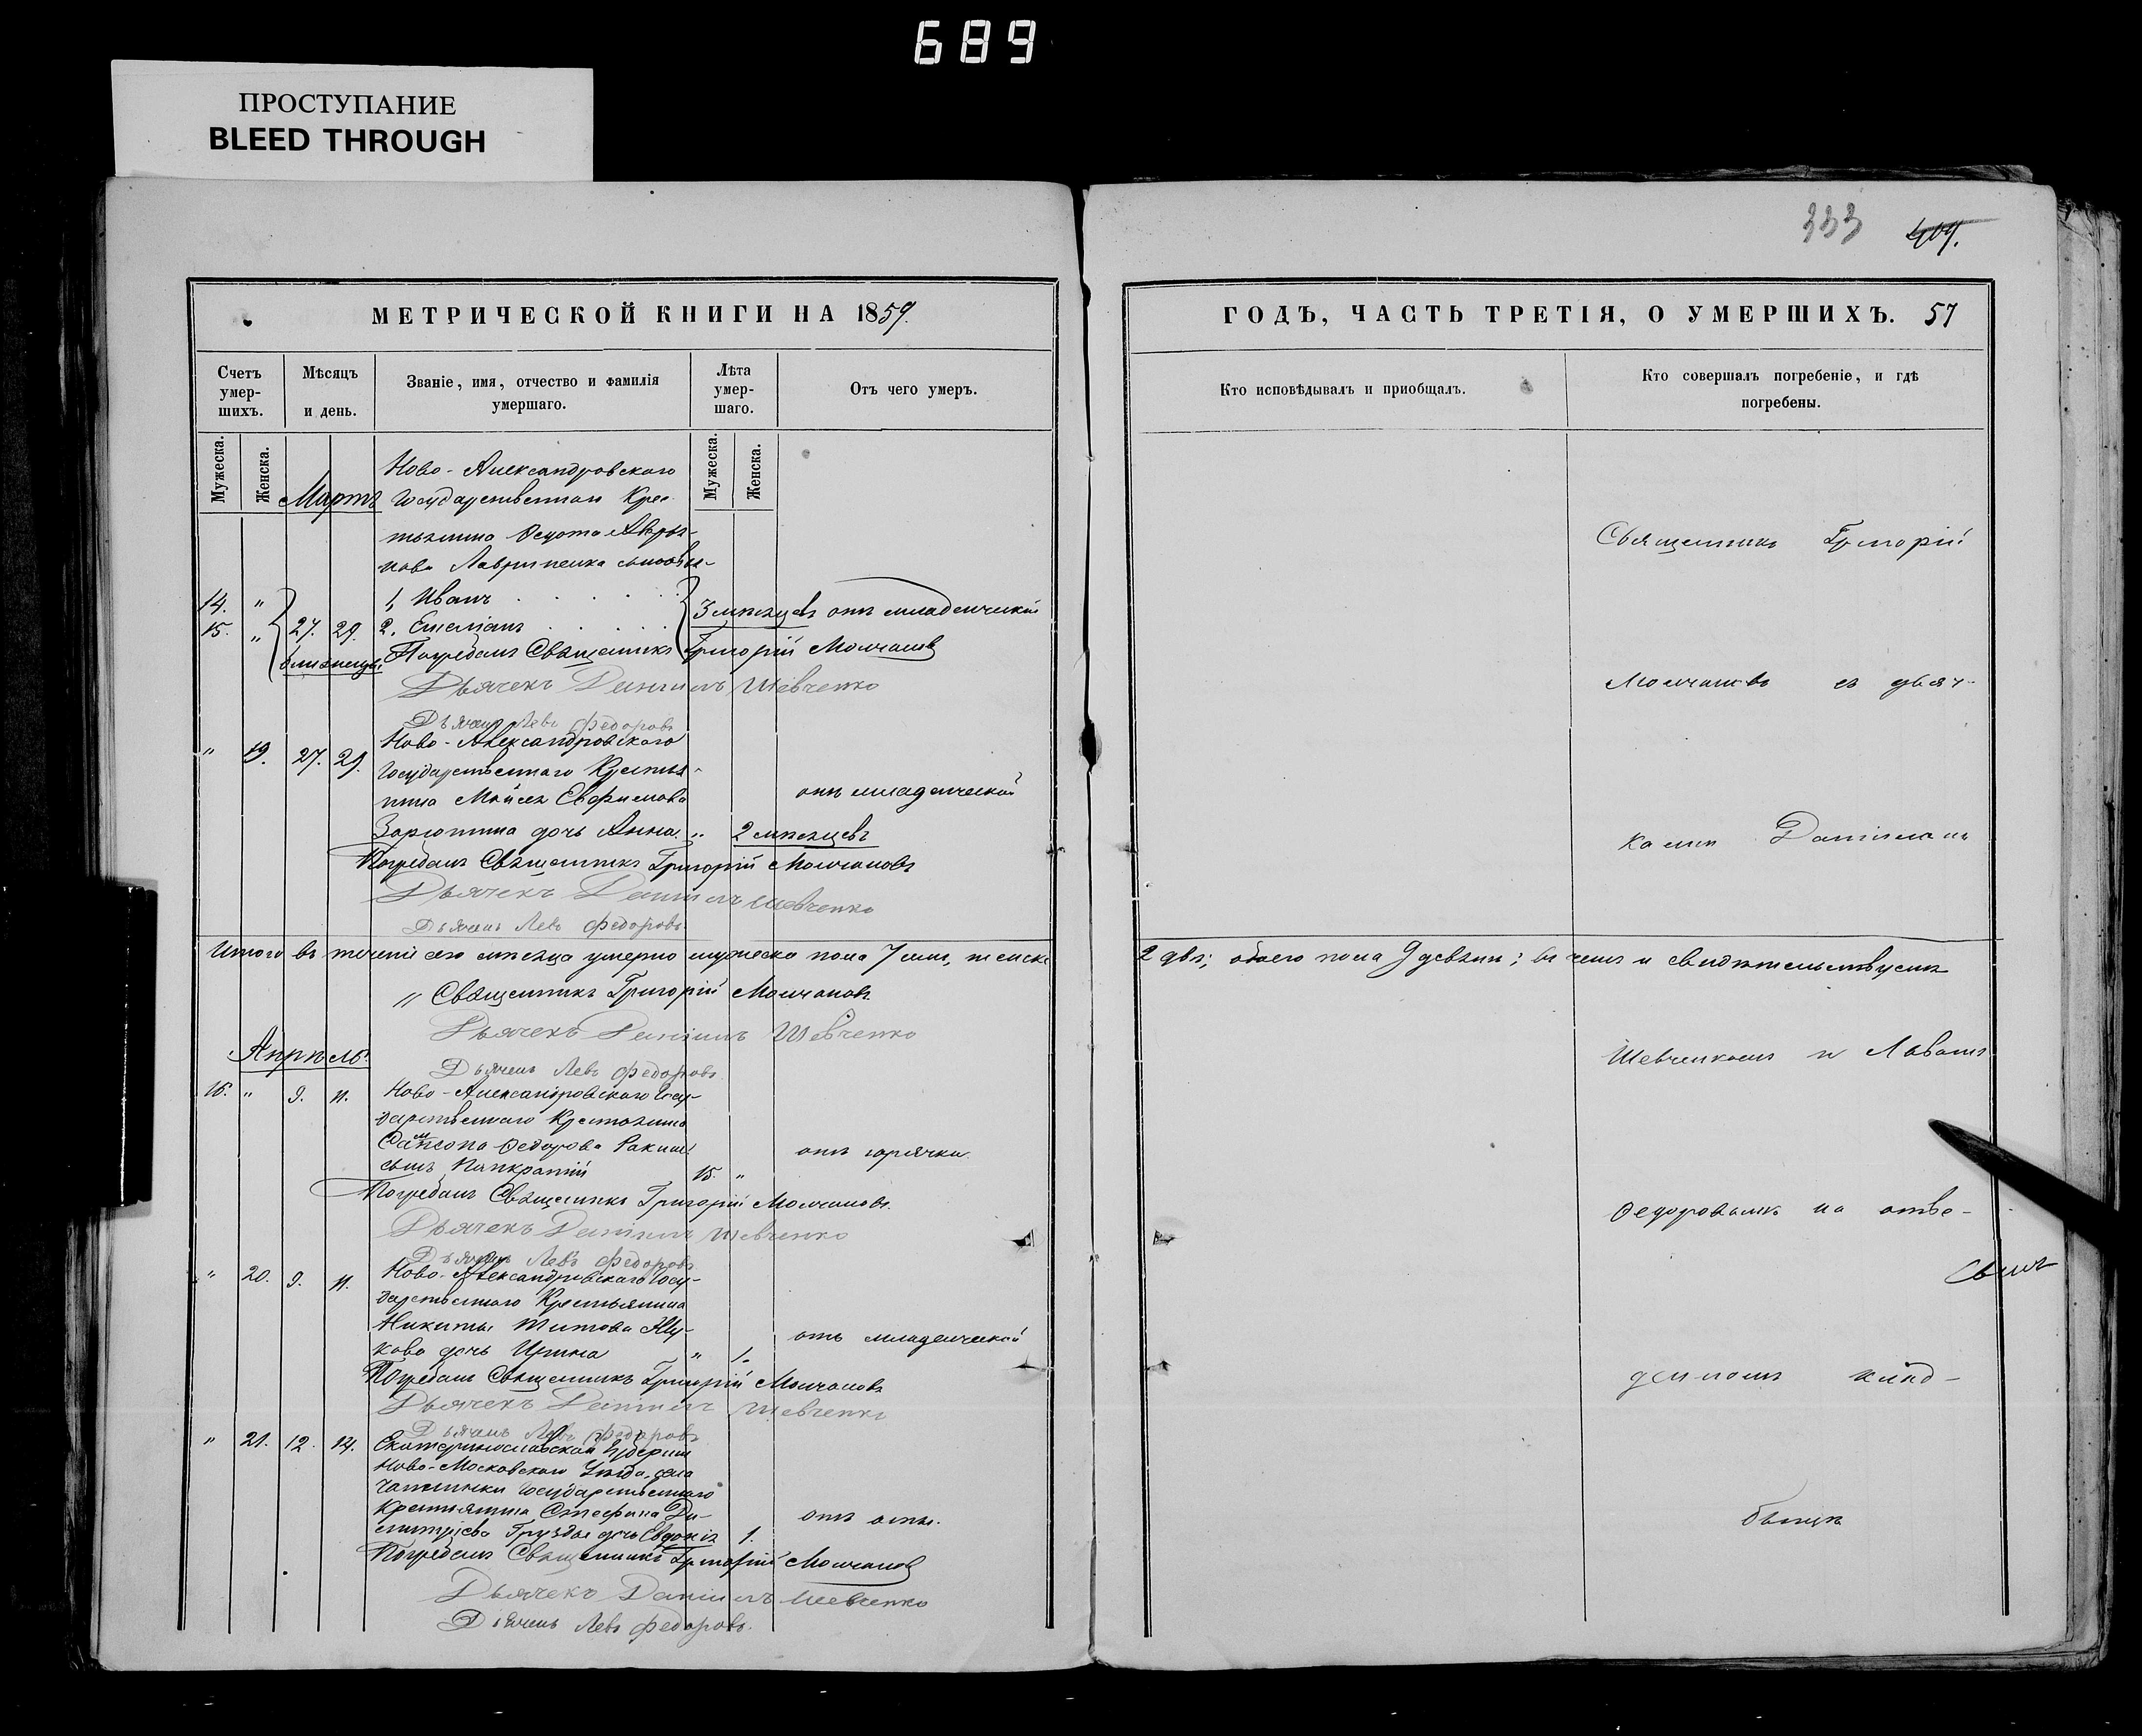 689
ПРОСТУПАНИЕ
BLEED THROUGH
333 409.
МЕТРИЧЕСКОЙ КНИГИ НА 1859.
Счетъ умер-
шихъ.
Мѣсяцъ
и день.
Званіе, имя, отчество и фамилія
умершаго.
Лѣта
умер-
шаго.
Отъ чего умеръ.
Мужеска.
Женска.
Мужеска.
Женска.
Мартъ
Ново-Александровского
Государственнаго Крес-
тьянина Федота
Лавриненка сыновья
14. " 1, Иванъ
15. " 27. 29. 2. Емеліанъ 3 мѣсяцевъ отъ младенческой
близнецы. Погребалъ Священникъ Григорій Молчановъ
Дьячекъ Даніилъ Шевченко
Дьячекъ Левъ Федоровъ
" 19. 27. 29. Ново-Александровского
Государственнаго Крестья-
нина Мойсея Евфимова отъ младенческой
дочь Анна. " 2 мѣсяцевъ
Погребалъ Священникъ Григорій Молчановъ
Дьячекъ Даніилъ Шевченко
Дьячекъ Левъ Федоровъ
Итого въ теченіи сего мѣсяца умерло мужеска пола 7 семь, женска
" Священникъ Григорій Молчановъ.
Дьячекъ Даніилъ Шевченко
Апрѣль. Дьячекъ Левъ Федоровъ
16. " 9. 11. Ново-Александровского Госу-
дарственнаго Крестьянина
Самсона Федорова отъ горячки
сынъ Панкратій 15. "
Погребалъ Священникъ Григорій Молчановъ.
Дьячекъ Даніилъ Шевченко
Дьячекъ Левъ Федоровъ
" 20. 9. 11. Ново-Александровского Госу-
дарственнаго Крестьянина
Никиты Титова Жу- отъ младенческой
кова дочь Ирина " 1.
Погребалъ Священникъ Григорій Молчановъ
Дьячекъ Даніилъ Шевченко
Дьячекъ Левъ Федоровъ
" 21. 12. 14. Екатеринославской Губерніи
Ново-Московского Уѣзда, села
Государственнаго
Крестьянина Стефана Ди- отъ оспы.
митріева дочь Евдокія 1.
Погребалъ Священникъ Григорій Молчановъ
Дьячекъ Даніилъ Шевченко
Дьячекъ Левъ Федоровъ.
ГОДЪ, ЧАСТЬ ТРЕТІЯ, О УМЕРШИХЪ. 57
Кто исповѣдывалъ и приобщалъ.
Кто совершалъ погребеніе, и гдѣ
погребены.
Священникъ Григорій
Молчановъ съ дьяч-
ками Даніиломъ
2 двѣ; обоего пола 9 девять; въ чемъ и свидѣтельствуемъ
Шевченкомъ и Львомъ
Федоровымъ на отве-
Свящ
денномъ клад-
бищѣ